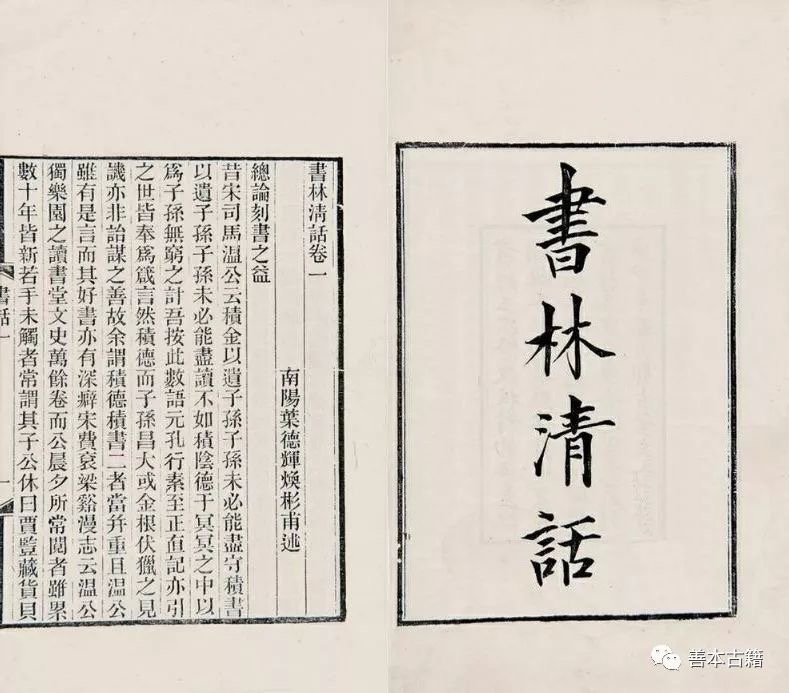 書林清話
書林淸話卷一
南陽葉德輝煥彬甫述
總論刻書之益
昔宋司馬溫公云積金以遺子孫子孫未必能盡守積書
以遺子孫子孫未必能盡讀不如積陰德于冥冥之中以
爲子孫無窮之計吾按此數語元孔行素至正直記亦引
之世皆奉爲箴言然積德而子孫昌大或金根伏獵之見
譏亦非詒謀之善故余謂積德積書二者當幷重且溫公
雖有是言而其好書亦有深癖宋費袞梁谿漫志云溫公
獨樂園之讀書堂文史萬餘卷而公晨夕所常閱者雖累
數十年皆新若手未觸者常謂其子公休曰賈豎藏貨貝
書話一
一
善本古籍